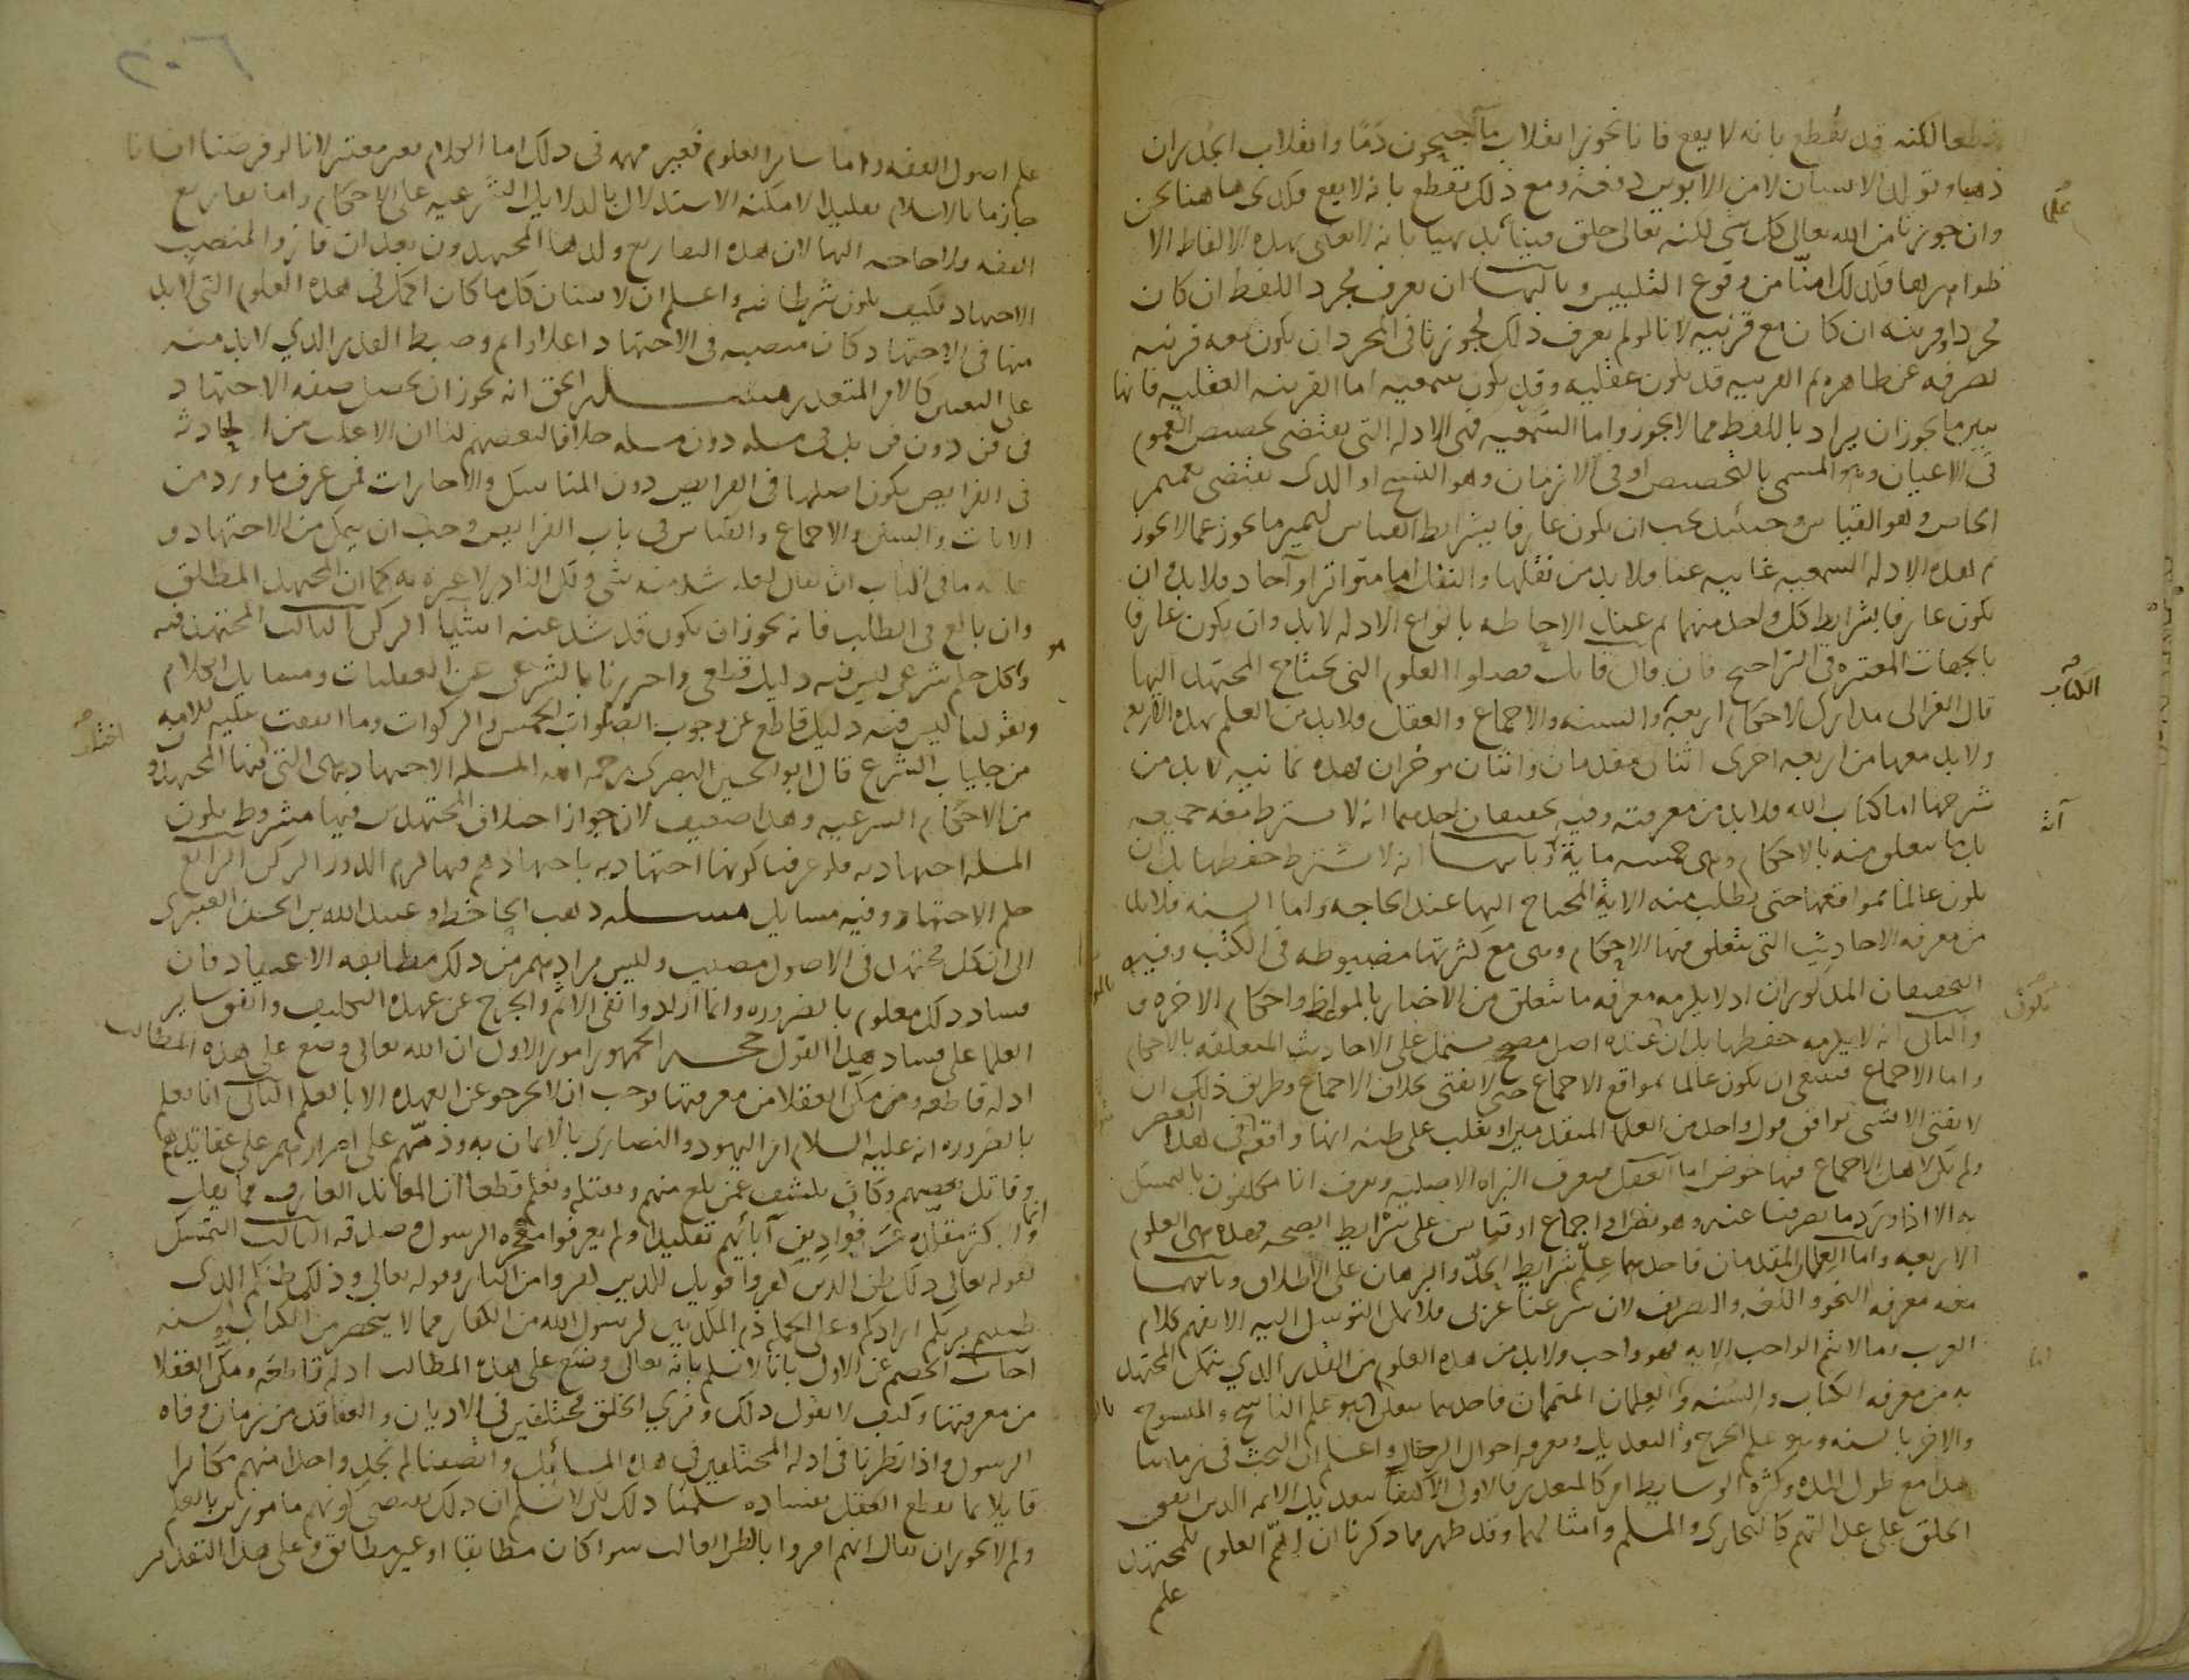 قطعا لكنه قد يقطع بانه لا يقع فانا نجوز انقلاب ما جيحون دما وانقلاب الجدران
ذهبا وتولد الانسان لا من الابوين دفعة ومع ذلك نقطع بانه لا يقع فكذى هاهنا نحن
وان جوزنا من الله تعالى كل شى لكنه تعالى خلق فينا علما بديهيا بانه لا يعنى بهذه الالفاظ الا
ظواهرها فلذلك امنا من وقوع التلبيس وثالثها ان يعرف مجرد اللفظ ان كان
مجردا وقرينته ان كان مع قرينة لانا لو لم يعرف ذلك لجوزنا فى المجرد ان يكون معه قرينة
تصرفه عن ظاهره ثم القرينة قد تكون عقلية وقد تكون سمعية اما القرينة العقلية فانها
تبين ما يجوز ان يراد باللفظ مما لا يجوز واما السمعية فهى الادلة التى تقتضى تخصيص العموم
فى الاعيان وهو المسمى بالتخصيص او فى الازمان وهو النسخ او الذى يقتضى تعميم
الخاص وهو القياس وحينئذ يجب ان يكون عارفا بشرايط القياس ليميز ما يجوز عما لا يجوز
ثم هذه الادلة السمعية غايبة عنا فلا بد من نقلها والنقل اما متواتر او آحاد فلا بد وان
يكون عارفا بشرايط كل واحد منهما ثم عند الاحاطة بانواع الادلة لا بد وان يكون عارفا
بالجهات المعتبرة فى التراجيح فان قال قايل فصلوا العلوم التى يحتاج المجتهد اليها
قال الغزالى مدارك الاحكام اربعة الكتاب والسنة والاجماع والعقل فلا بد من العلم بهذه الاربع
ولا بد معها من اربعة اخرى اثنان مقدمان واثنان مؤخران فهذه ثمانية لا بد من
شرحها اما كتاب الله فلا بد من معرفته وفيه تخفيفان احدهما انه لا يشترط معرفة جميعه
بل ما يتعلق منه بالاحكام وهى خمس ماية آية وثانيهما انه لا يشترط حفظها بل ان
يكون عالما بمواقعها حتى يطلب منه الاية المحتاج اليها عند الحاجة واما السنة فلا بد
من معرفة الاحاديث التى يتعلق منها الاحكام وهى مع كثرتها مضبوطة فى الكتب وفيه
التخفيفان المذكوران اذ لا يلزمه معرفة ما يتعلق من الاخبار بالمواعظ واحكام الاخرة
والثانى انه لا يلزمه حفظها بل ان يكون عنده اصل مصحح مشتمل على الاحاديث المتعلقة بالاحكام
واما الاجماع فينبغى ان يكون عالما بمواقع الاجماع حتى لا يفتى بخلاف الاجماع وطريق ذلك ان
لا يفتى الا بشى يوافق قول واحد من العلما المتقدمين او يغلب على ظنه انها واقعة فى هذا العصر
ولم يكن لاهل الاجماع فيها خوض اما العقل فيعرف البراة الاصلية ويعرف انا مكلفون بالتمسك
به الا اذا ورد ما يصرفنا عنه وهو نص او اجماع او قياس على شرايط الصحة فهذه هى العلوم
الاربعة واما العلمان المقدمان فاحدهما علم شرايط الحد والبرهان على الاطلاق وثانيهما
معه معرفة النحو واللغة والتصريف لان شرعنا عربى فلا يمكن التوسل اليه الا بفهم كلام
العرب وما لا يتم الواجب الا به فهو واجب ولا بد من هذه العلوم من القدر الذي يتمكن المجتهد
به من معرفة الكتاب والسنة واما العلمان المتممان فاحدهما يتعلق بالكتاب وهو علم الناسخ والمنسوخ
والاخر بالسنة وهو علم الجرح والتعديل ومعرفة احوال الرجال واعلم ان البحث فى زماننا
هذا مع طول المدة وكثرة الوسايط امر كالمتعذر فالاولى الاكتفا بتعديل الائمة الذين اتفق
الخلق على عدالتهم كالبخارى والمسلم وامثالهما وقد ظهر مما ذكرنا ان اهم العلوم للمجتهد
علم
٢٠٦
علم اصول الفقه واما ساير العلوم فغير مهمة فى ذلك اما الكلام فغير معتبر لانا لو فرضنا انسانا
جازما بالاسلام تقليدا لامكنه الاستدلال بالدلايل الشرعية على الاحكام واما تفاريع
الفقه ولا حاجة اليها لان هذه التفاريع ولدها المجتهدون بعد ان فازوا بمنصب
الاجتهاد فكيف يكون شرطا فيه واعلم ان الانسان كل ما كان اكمل فى هذه العلوم التى لا بد
منها فى الاجتهاد كان منصبه فى الاجتهاد اعلا واتم وضبط القدر الذي لا بد منه
على التعيين كالامر المتعذر مسئلة الحق انه يجوز ان يحصل صفة الاجتهاد
فى فن دون فن بل فى مسئلة دون مسئلة خلافا لبعضهم لنا ان الاغلب من الحادثة
فى الفرايض يكون اصلها فى الفرايض دون المناسك والاجارات فمن عرف ما ورد من
الايات والسنن والاجماع والقياس فى باب الفرايض وجب ان يتمكن من الاجتهاد و
غاية ما فى الباب ان يقال لعله شذ منه شى ولكن النادر لا عبرة به كما ان المجتهد المطلق
وان بالغ فى الطلب فانه يجوز ان يكون قد شذ عنه اشيا الركن الثالث المجتهد فيه
وهو كل حكم شرعى ليس فيه دليل قطعى واحترزنا بالشرعى عن العقليات ومسايل الكلام
وبقولنا ليس فيه دليل قاطع عن وجوب الصلوات الخمس والزكوات وما اتفقت عليه الامة
من جليات الشرع قال ابو الحسين البصرى رحمه الله المسئلة الاجتهادية هى التى اختلف فيها المجتهدون
من الاحكام الشرعية وهذا ضعيف لان جواز اختلاف المجتهدين فيها مشروط بكون
المسئلة اجتهادية فلو عرفنا كونها اجتهادية باجتهادهم فيها لزم الدور الركن الرابع
حكم الاجتهاد وفيه مسايل مسئلة ذهب الجاحظ وعبيد الله بن الحسن العنبرى
الى ان كل مجتهد فى الاصول مصيب وليس مرادهم من ذلك مطابقة الاعتقاد فان
فساد ذلك معلوم بالضرورة وانما ارادوا نفى الاثم والخروج عن عهدة التكليف واتفق ساير
العلما على فساد هذا القول حجة الجمهور امور الاول ان الله تعالى وضع على هذه المطالب
ادلة قاطعة ومن مكن العقلا من معرفتها يوجب ان لا يخرجوا عن العهدة الا بالعلم الثانى انا نعلم
بالضرورة انه عليه السلام امر اليهود والنصارى بالايمان به وذمهم على اصرارهم على عقايدهم
وقاتل بعضهم وكان يكشف عمن بلغ منهم ويقتله ونعلم قطعا ان المعاند العارف مما يقل
وانما الاكثر مقلدة عرفوا دين آبائهم تقليدا ولم يعرفوا معجزة الرسول وصدقه الثالث التمسك
بقوله تعالى ذلك ظن الذين كفروا فويل للذين كفروا من النار وقوله تعالى وذلكم ظنكم الذى
ظننتم بربكم ارداكم وعلى الجملة ذم المكذبين لرسول الله من الكفار مما لا ينحصر من الكتاب والسنة
اجاب الخصم عن الاول بانا لا نسلم بانه تعالى وضع على هذه المطالب ادلة قاطعة ومكن العقلا
من معرفتها وكيف لا نقول ذلك ونرى الخلق مختلفين فى الاديان والعقايد من زمان وفاة
الرسول واذا نظرنا فى ادلة المختلفين فى هذه المسائل وانصفنا لم نجد واحدا منهم مكابرا
قايلا بما يقطع العقل بفساده سلمنا ذلك لكن لا نسلم ان ذلك يقتضى كونهم مامورين بالعلم
ولم لا يجوز ان يقال انهم امروا بالظن الغالب سوا كان مطابقا او غير مطابق وعلى هذا التقدير